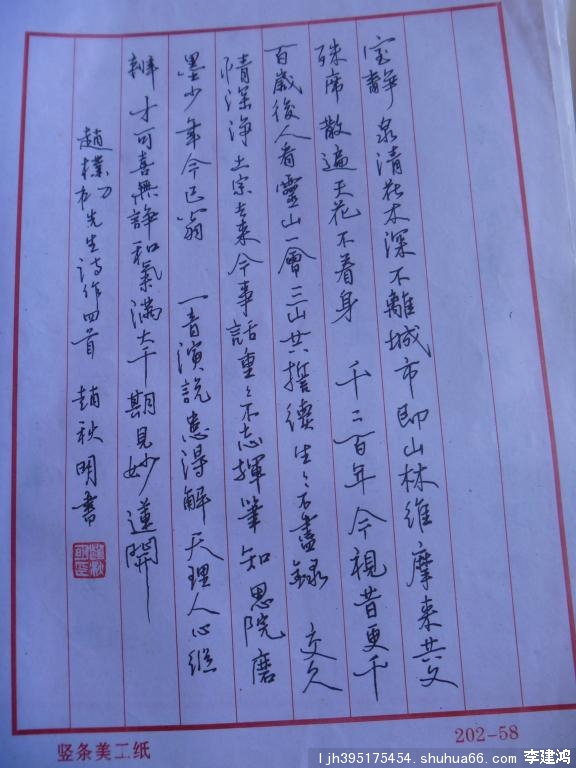 室静泉清花木深不離城市即山林維摩来共文
殊席散遍天花不着身 千二百年今視昔更千
百歲後人看靈山一會三山共誓續生々不盡緣 交久
情深淨土宗去来今事話重々不忘揮筆知恩院磨
墨少年今已翁 一音演說悉得解天理人心
辯才可喜無諍和氣滿大千期見妙蓮開
趙樸初先生诗作四首 趙秋明書
竖条美工纸
202-58
ljh395175454. shuhua66. com 李建鸿